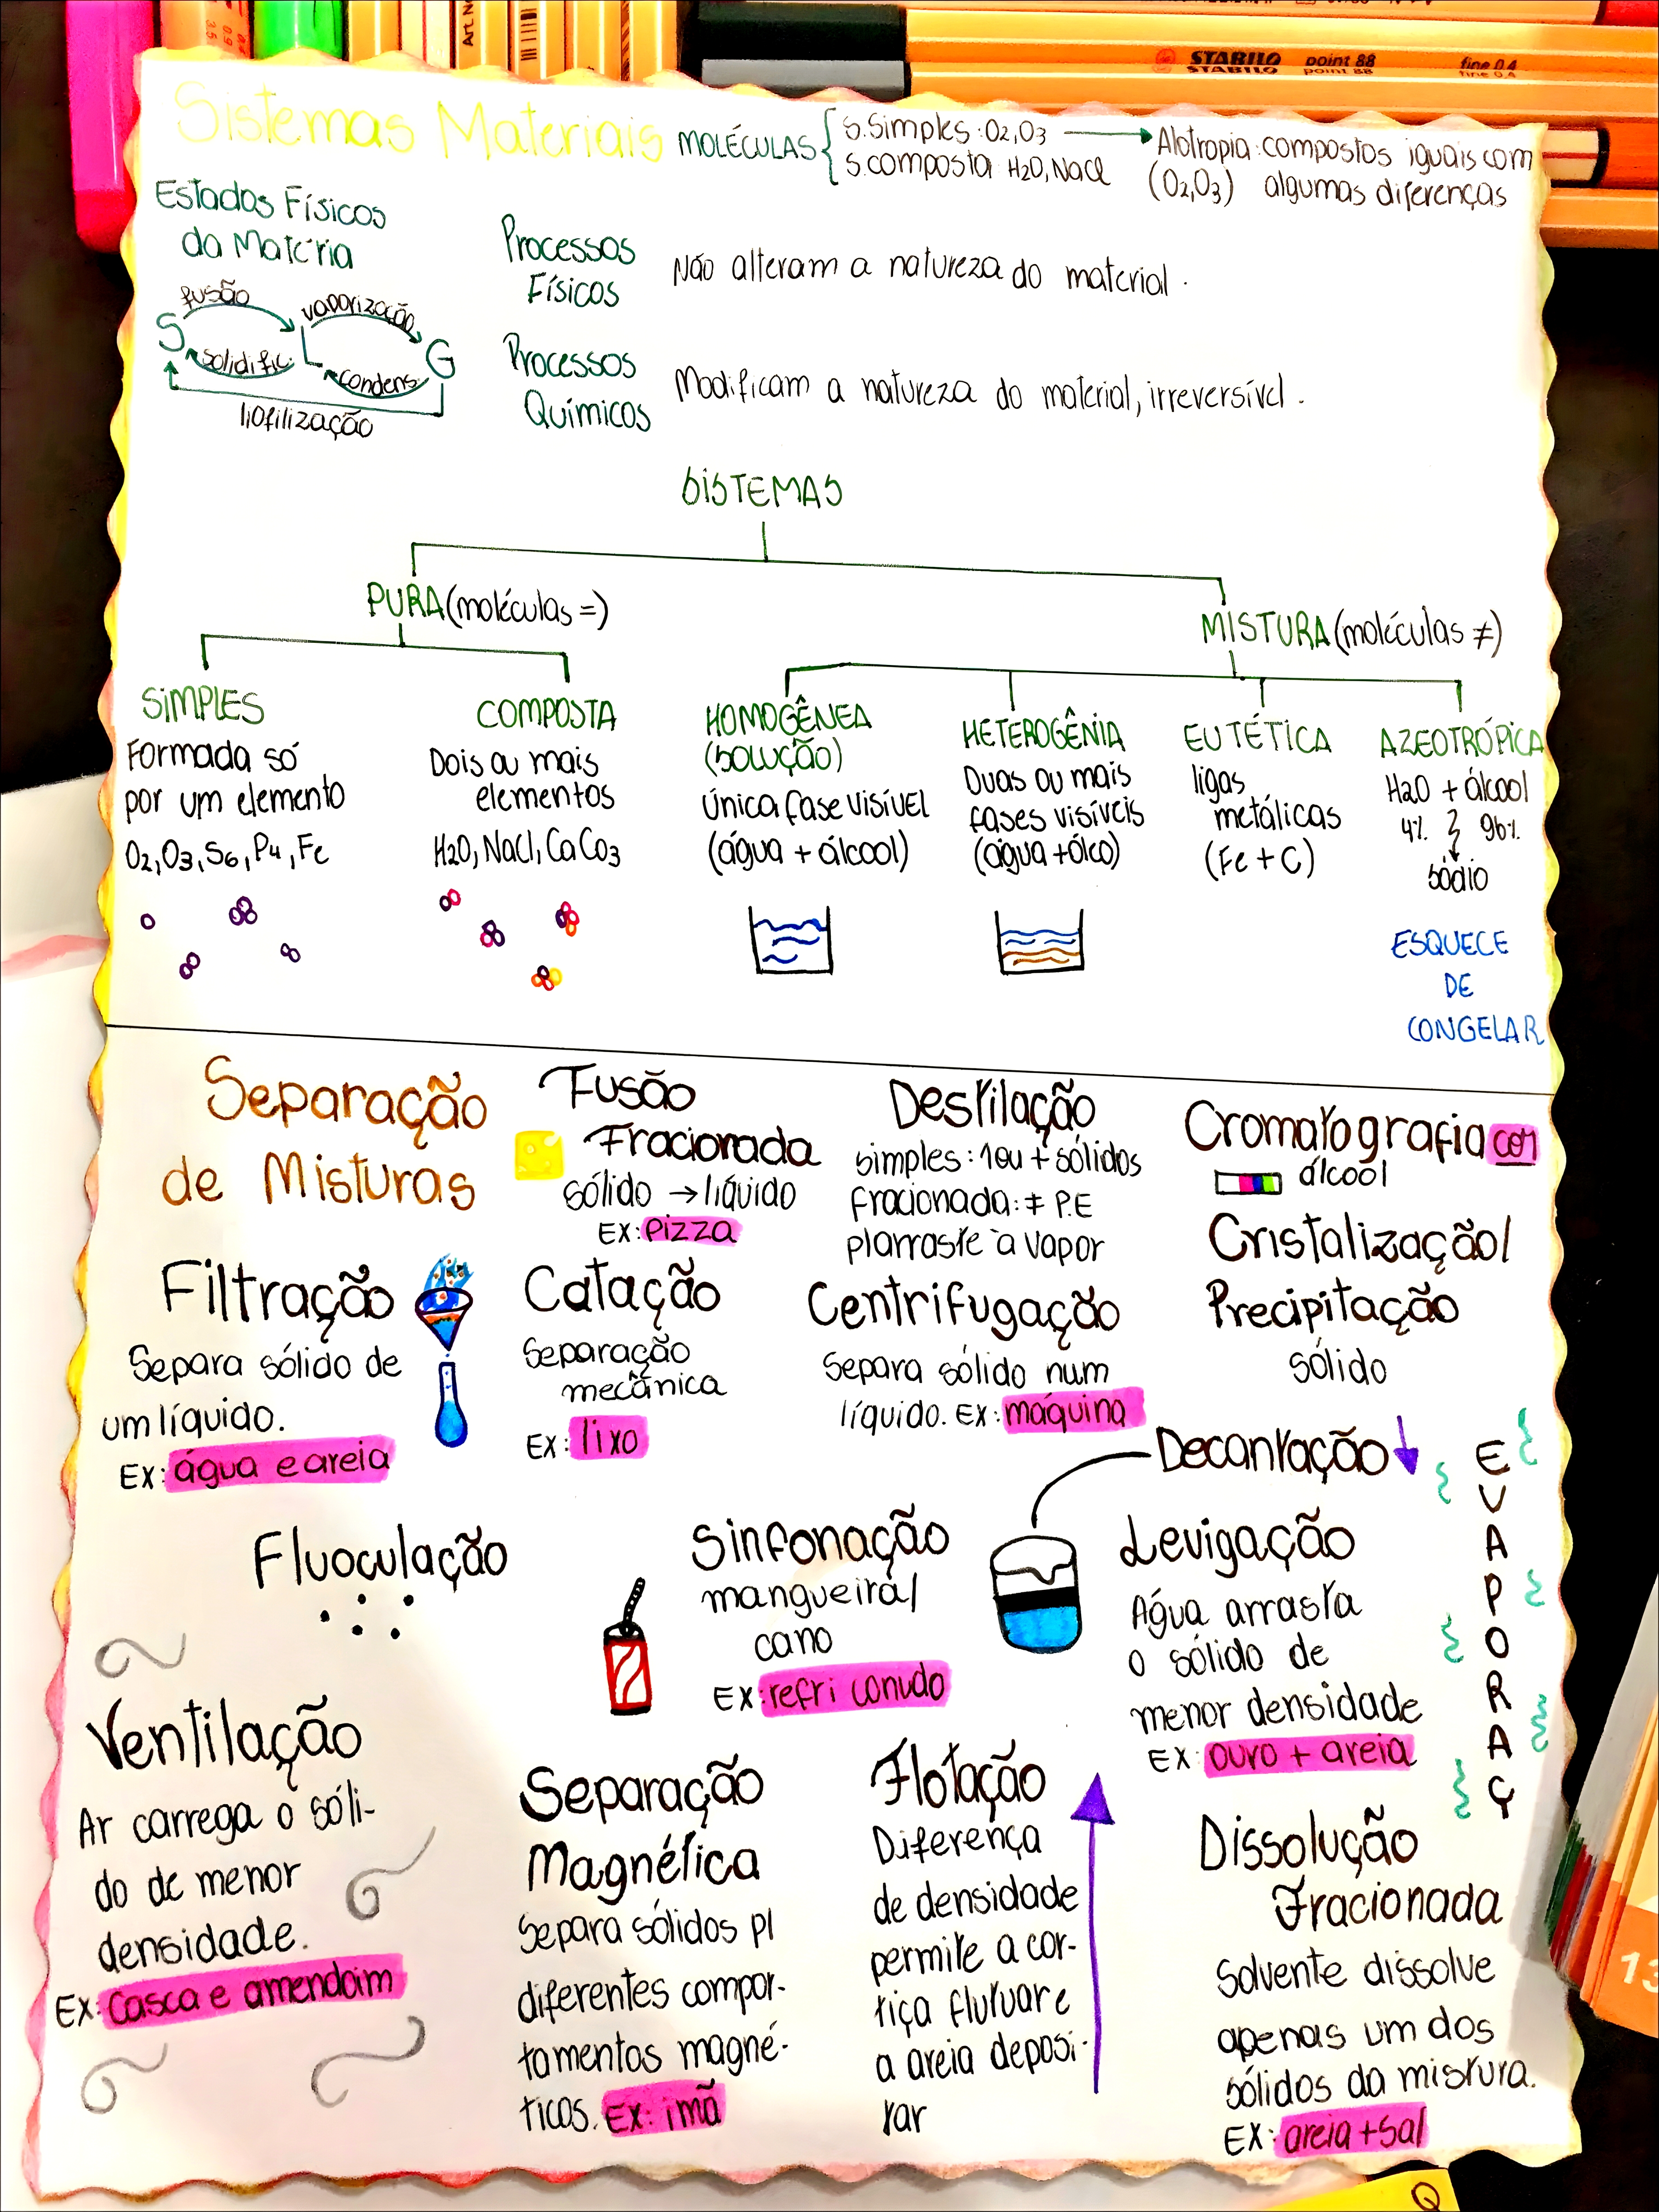 Art. N
STABILO point 88 fine 0.4
STABILO point 88 fine 0.4
Sistemas Materiais
MOLÉCULAS
S. Simples: O2, O3
S. composta: H2O, NaCl
Alotropia: compostos iguais com
(O2, O3) algumas diferenças
Estados Físicos
da Matéria
fusão
vaporização
S
L
G
solidific.
condens
liofilização
Processos
Físicos
Não alteram a natureza do material.
Processos
Químicos
Modificam a natureza do material, irreversível.
SISTEMAS
PURA (moléculas =)
MISTURA (moléculas ≠)
SIMPLES
Formada só
por um elemento
O2, O3, S6, P4, Fe
COMPOSTA
Dois ou mais
elementos
H2O, NaCl, CaCo3
HOMOGÊNEA
(SOLUÇÃO)
Única fase visível
(água + álcool)
HETEROGÊNIA
Duas ou mais
fases visíveis
(água + óleo)
EUTÉTICA
ligas
metálicas
(Fe + C)
AZEOTRÓPICA
H2O + álcool
4% 96%
sódio
ESQUECE
DE
CONGELAR
Separação
de Misturas
Fusão
Fracionada
sólido → líquido
EX: pizza
Destilação
simples: 1 ou + sólidos
fracionada: ≠ P.E
p/arraste à vapor
Cromatografia cor
álcool
Cristalização/
Precipitação
sólido
Filtração
Separa sólido de
um líquido.
EX: água e areia
Catação
Separação
mecânica
EX: lixo
Centrifugação
Separa sólido num
líquido. EX: máquina
Decantação
EVAPORAÇ
Fluoculação
Sinfonação
mangueira/
cano
EX: refri conudo
Levigação
Água arrasta
o sólido de
menor densidade
EX: ouro + areia
Ventilação
Ar carrega o sóli-
do de menor
densidade.
EX: casca e amendoim
Separação
Magnética
Separa sólidos p/
diferentes compor-
tamentos magné-
ticos. EX: imã
Flotação
Diferença
de densidade
permite a cor-
tiça flutuar e
a areia deposi-
tar
Dissolução
Fracionada
Solvente dissolve
apenas um dos
sólidos da mistura.
EX: areia + sal
13
Q